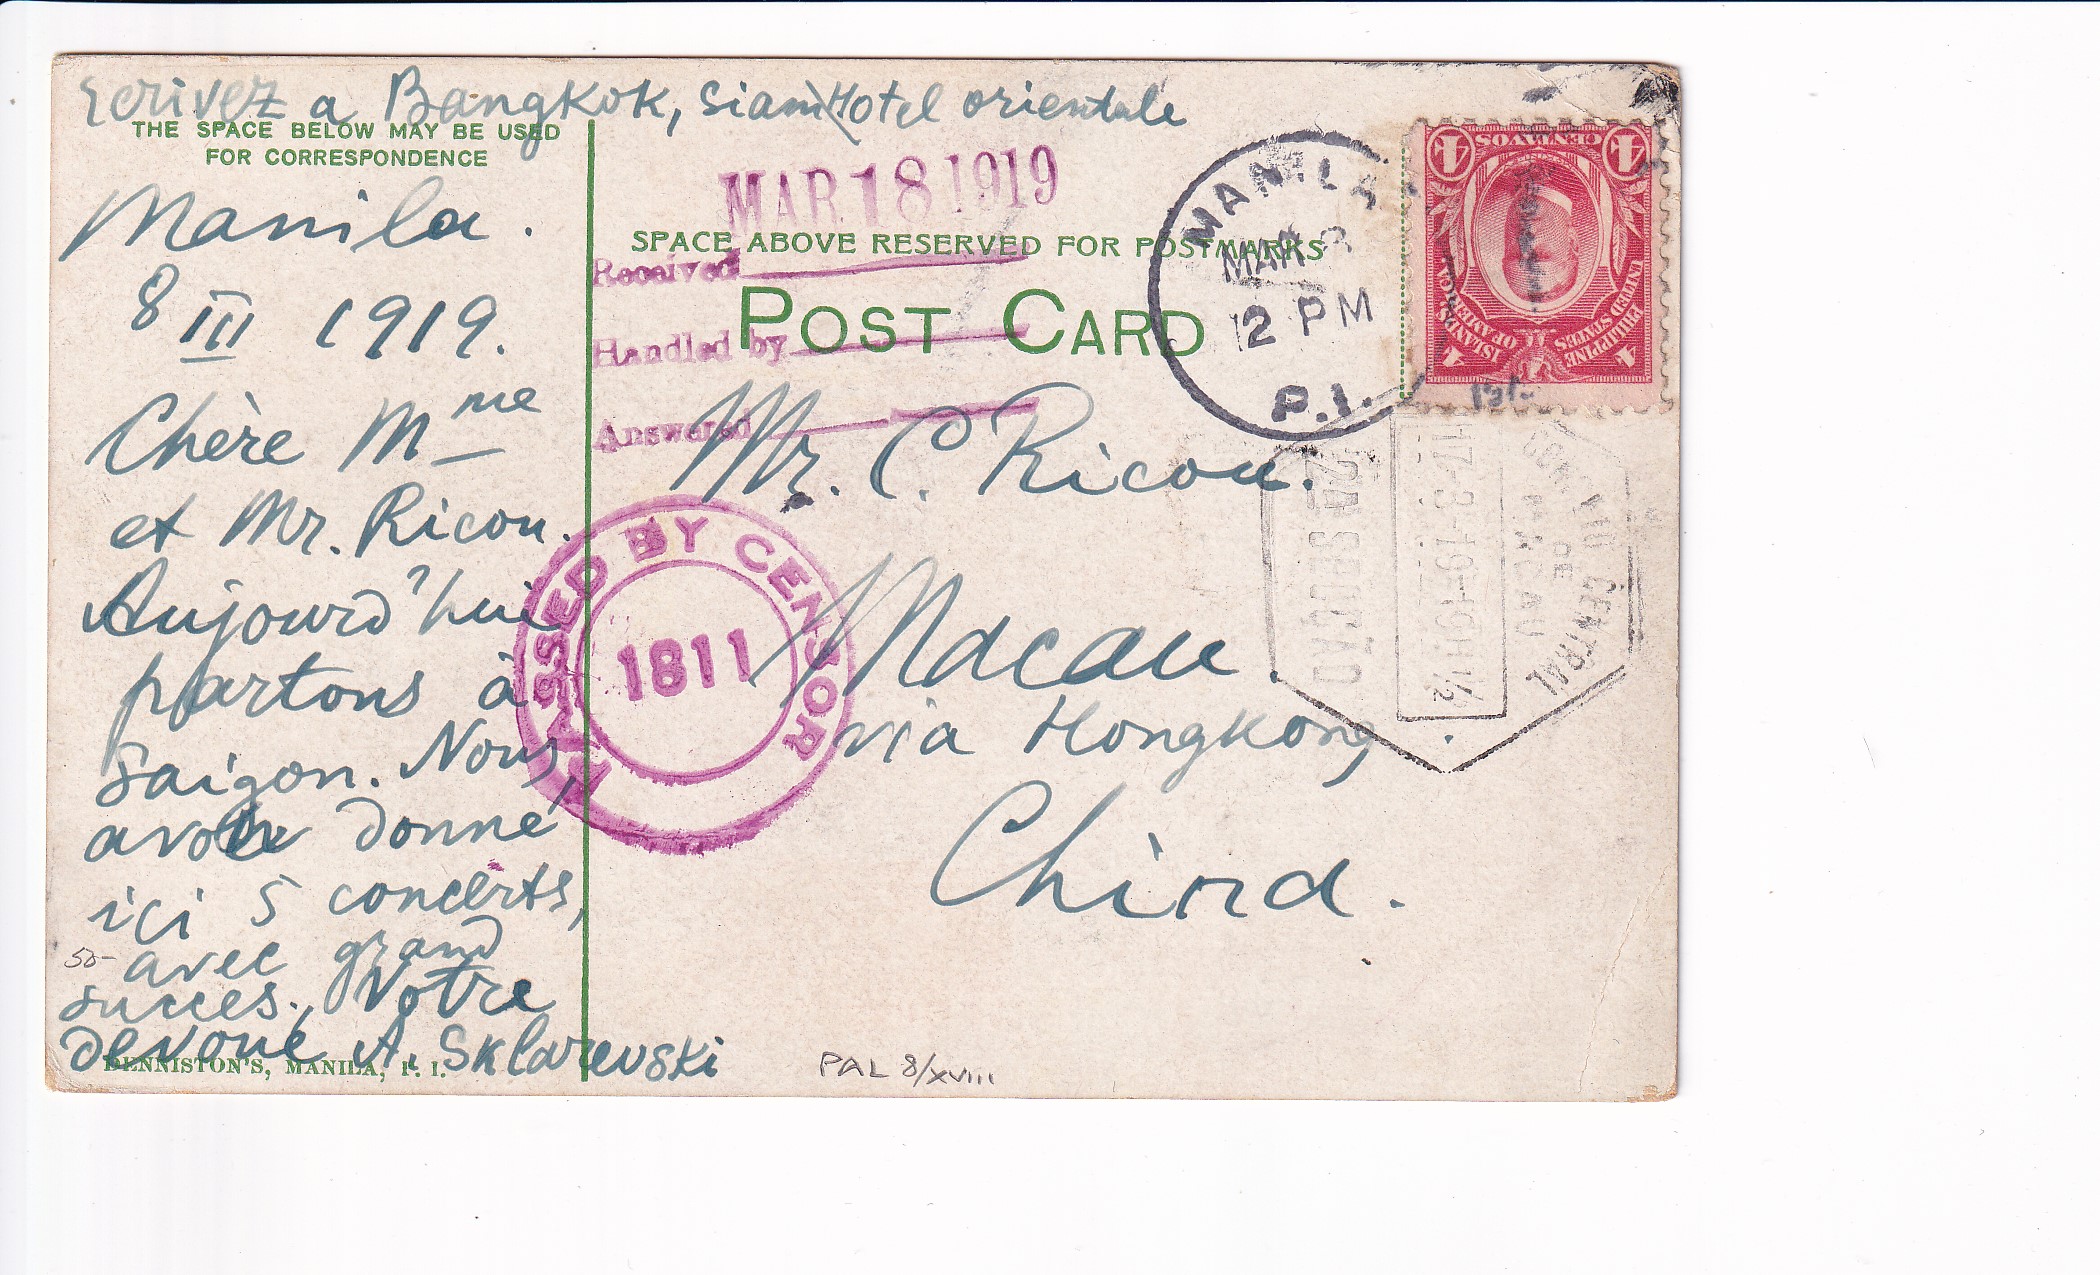 Ecrivez a Bangkok, Siam Hotel orientale
THE SPACE BELOW MAY BE USED
FOR CORRESPONDENCE
Manila.
8 III 1919.
Chère Mme
et Mr. Ricou.
Aujourd'hui
partons à
Saigon. Nous
avons donné
ici 5 concerts,
avec grand
succes. Votre
devoué A. Sklarevski
DENNISTON'S, MANILA, P. I.
50-
MAR 18 1919
SPACE ABOVE RESERVED FOR POSTMARKS
Received
Handled by
Answered
POST CARD
MANILA
MAR
12 PM
P.I.
4 CENTAVOS 4
PHILIPPINE ISLANDS
UNITED STATES OF AMERICA
Mr. C. Ricou.
Macau.
via Hongkong
China.
PASSED BY CENSOR
1811
CENTRAL
DE
MACAU
2A SECÇÃO
PAL 8/XVIII